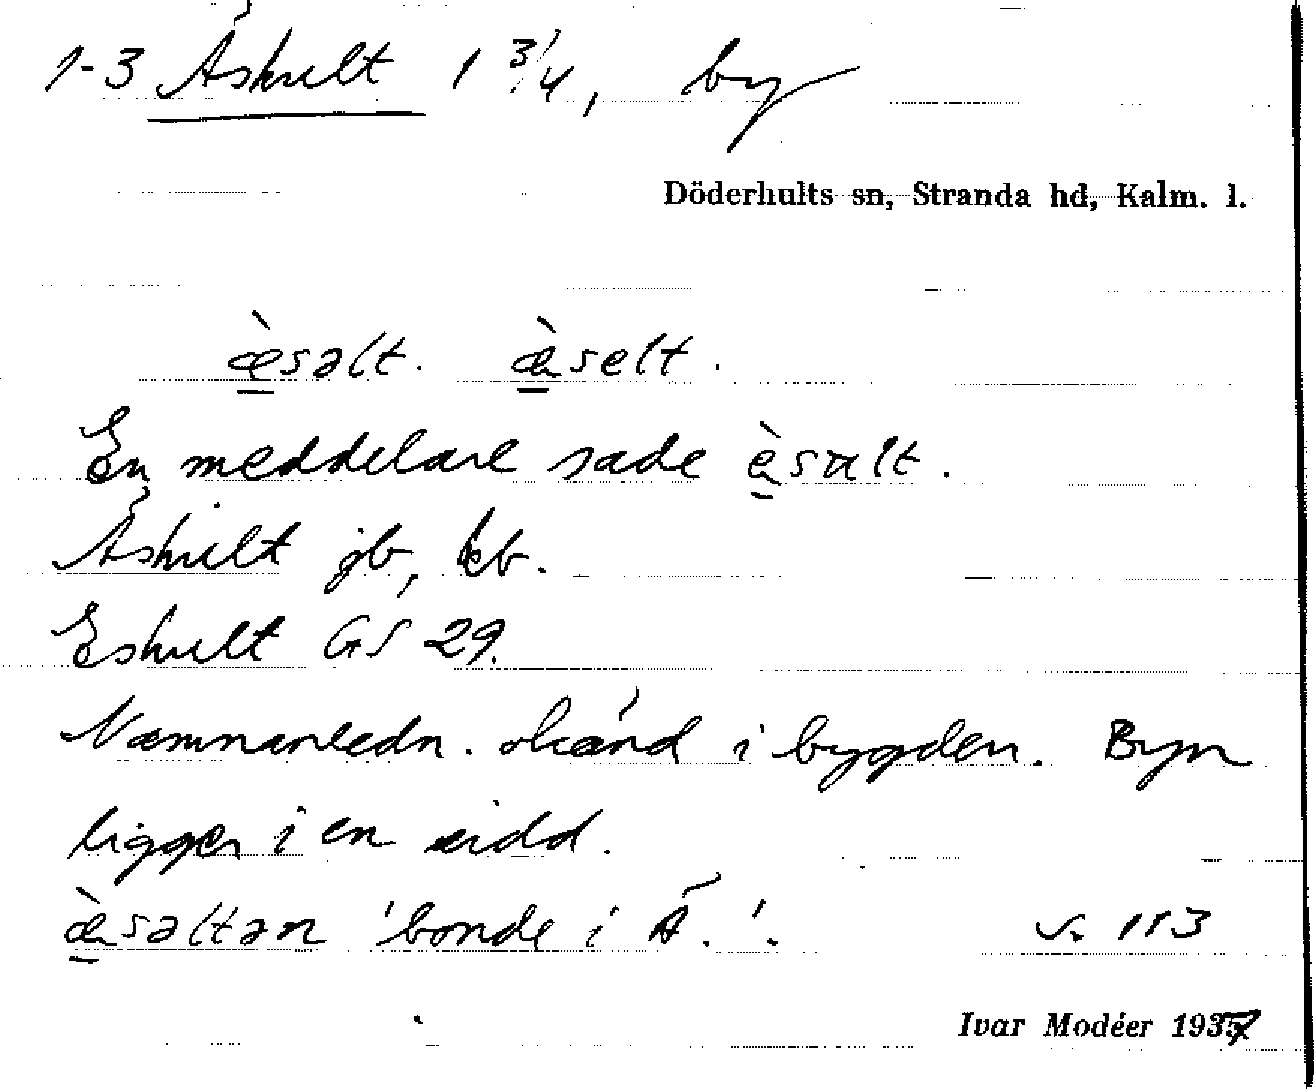 1-3 Åshult 1 3/4, by
Döderhults sn, Stranda hd, Kalm. l.
æ̀səlt. æ̀selt.
En meddelare sade è̱sælt.
Åshult jb, kb.
Eshult GS 29.
Namnanledn. okänd i bygden. Byn
ligger i en ridd.
æ̀səltən 'bonde i Å.'. s. 113
Ivar Modéer 1937